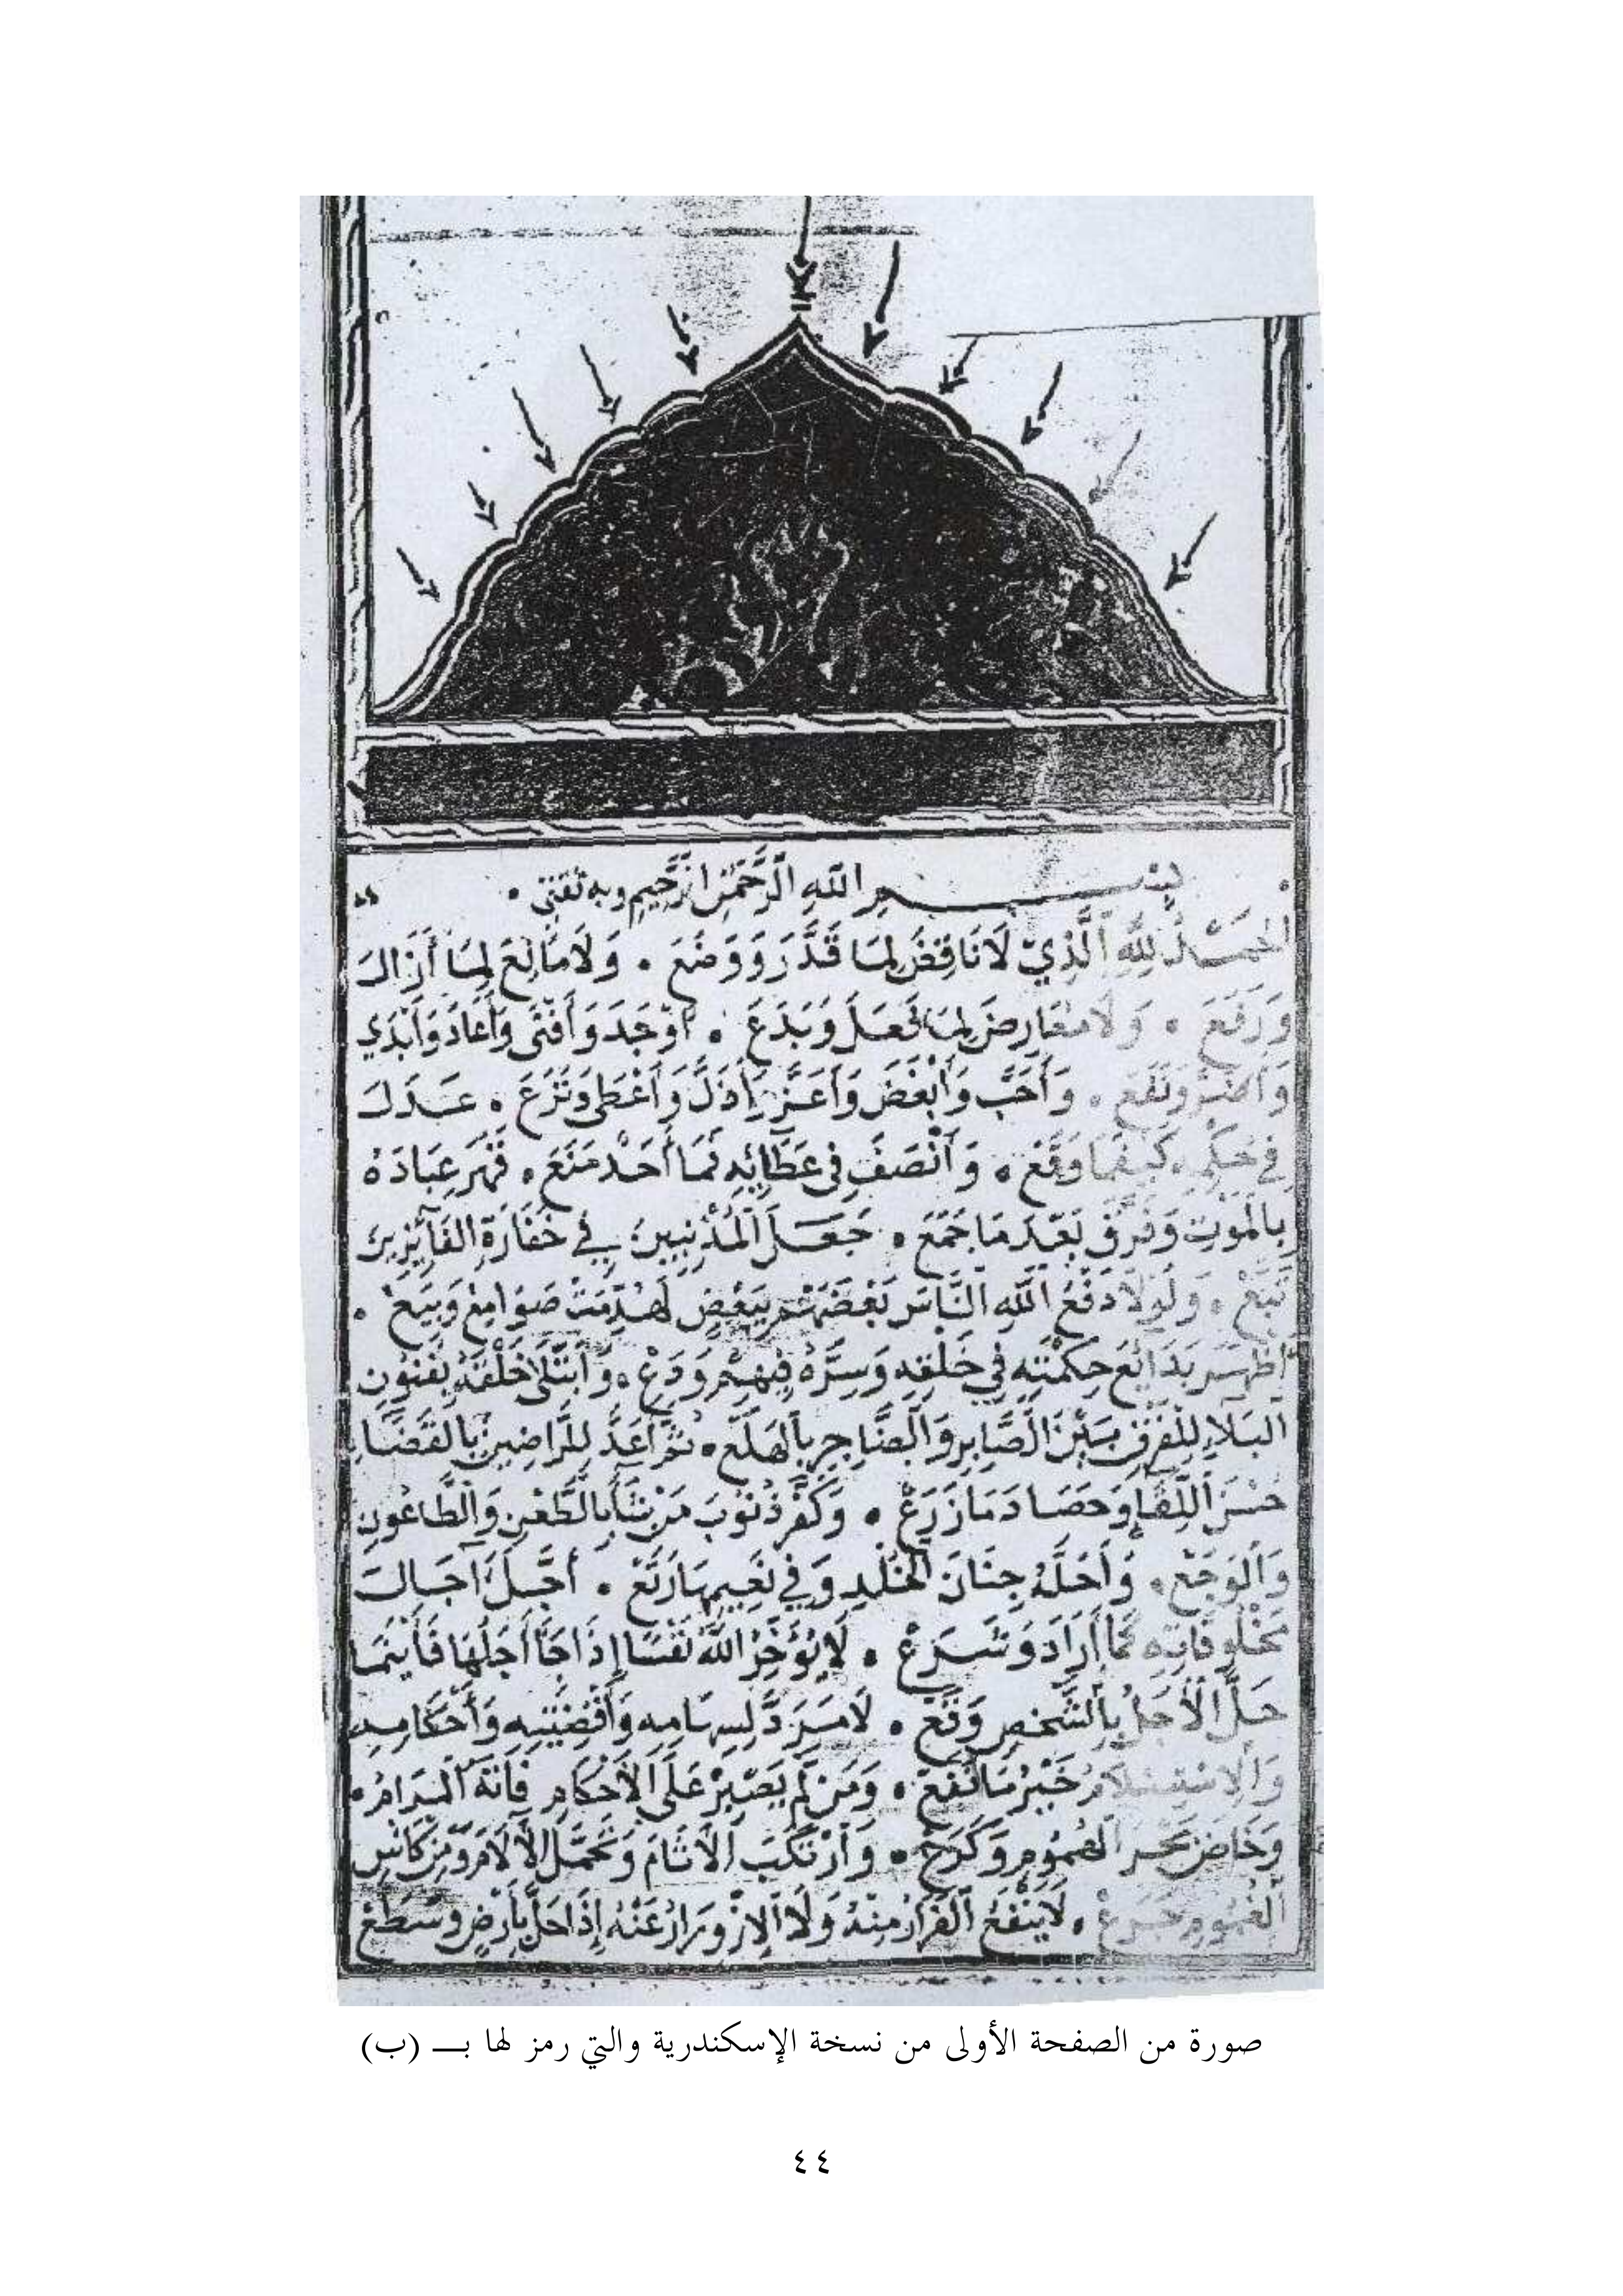 بِسْمِ اللَّهِ الرَّحْمَنِ الرَّحِيمِ وبه ثقتي
الحَمْدُ لِلَّهِ الَّذِي لَا نَاقِضَ لِمَا قَدَّرَ وَوَضَعَ . وَلَا مَانِعَ لِمَا أَزَالَ
وَرَفَعَ . وَلَا مُعَارِضَ لِمَا فَعَلَ وَبَدَعَ . أَوْجَدَ وَأَفْنَى وَأَعَادَ وَأَبْدَي
وَأَضَرَّ وَنَفَعَ . وَأَحَبَّ وَأَبْغَضَ وَأَعَزَّ وَأَذَلَّ وَأَعْطَى وَنَزَعَ . عَدَلَ
فِي حُكْمِهِ كَيْفَمَا وَقَعَ . وَأَنْصَفَ فِي عَطَائِهِ فَمَا أَحَدٌ مَنَعَ . قَهَرَ عِبَادَهُ
بِالْمَوْتِ وَفَرَّقَ بَعْدَ مَا جَمَعَ . جَعَلَ الْمُذْنِبِينَ فِي خَفَارَةِ الفَائِزِينَ
تَبَعْ . وَلَوْلَا دَفْعُ اللَّهِ النَّاسَ بَعْضَهُمْ بِبَعْضٍ لَهُدِّمَتْ صَوَامِعُ وَبِيَعْ .
أَظْهَرَ بَدَائِعَ حِكْمَتِهِ فِي خَلْقِهِ وَسِرَّهُ فِيهِمْ وَدَعْ . وَابْتَلَى خَلْقَهُ بِفُنُونِ
البَلَاءِ لِلْفَرْقِ بَيْنَ الصَّابِرِ وَالضَّاجِرِ بِالْهَلَعْ . ثُمَّ أَعَدَّ لِلرَّاضِينَ بِالقَضَاءِ
حُسْنَ اللِّقَاءِ وَحَصَادَ مَا زَرَعْ . وَكَفَّرَ ذُنُوبَ مَنْ شَاءَ بِالطَّعْنِ وَالطَّاعُونِ
وَالْوَجَعْ . وَأَحَلَّهُ جِنَانَ الْخُلْدِ وَفِي نَعِيمِهَا رَتَعْ . أَجَّلَ آجَالَ
مَخْلُوقَاتِهِ كَمَا أَرَادَ وَشَرَعْ . لَا يُؤَخِّرُ اللَّهُ نَفْسًا إِذَا جَاءَ أَجَلُهَا فَأَيْنَمَا
حَلَّ الْأَجَلُ بِالشَّخْصِ وَقَعْ . لَا مَرَدَّ لِسِهَامِهِ وَأَقْضِيَتِهِ وَأَحْكَامِهِ
وَالِاسْتِسْلَامُ خَيْرُ مَا نَفَعْ . وَمَنْ لَمْ يَصْبِرْ عَلَى الأَحْكَامِ فَاتَهُ الْمَرَامُ .
وَخَاضَ بَحْرَ الْهُمُومِ وَكَرَعْ . وَارْتَكَبَ الْآثَامَ وَتَحَمَّلَ الْآلَامَ وَمِنْ كَاسِ
الْغُمُومِ جَرَعْ . لَا يَنْفَعُ الْفِرَارُ مِنْهُ وَلَا الِازْوِرَارُ عَنْهُ إِذَا حَلَّ بِأَرْضٍ وَسَطَعْ
صورة من الصفحة الأولى من نسخة الإسكندرية والتي رمز لها بـ (ب)
٤٤